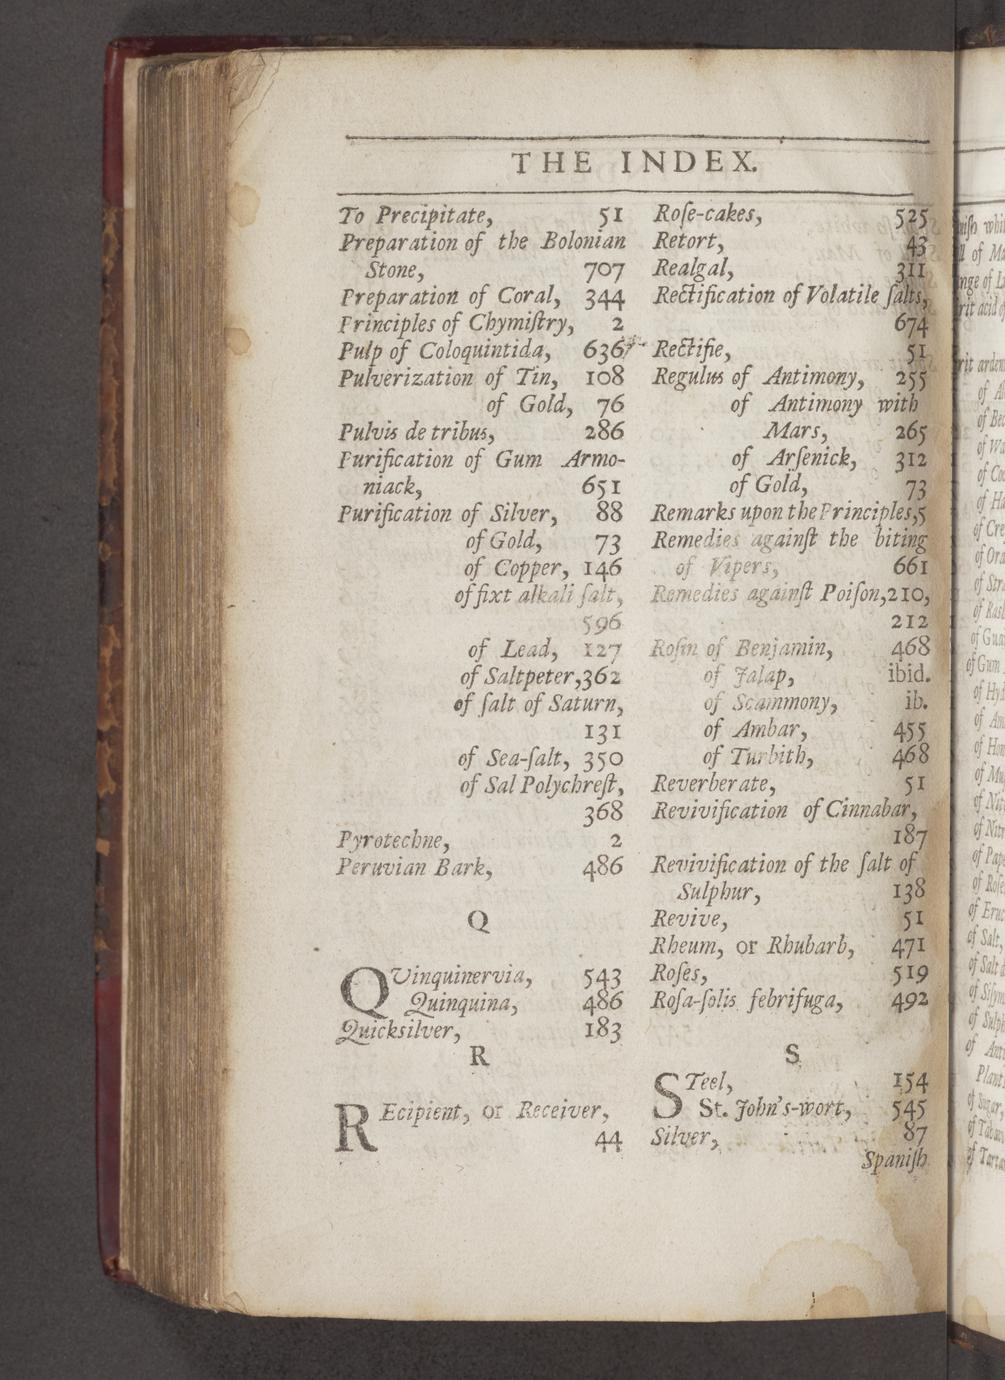 THE INDEX.
To Precipitate, 51
Preparation of the Bolonian
Stone, 707
Preparation of Coral, 344
Principles of Chymiſtry, 2
Pulp of Coloquintida, 636
Pulverization of Tin, 108
of Gold, 76
Pulvis de tribus, 286
Purification of Gum Armo-
niack, 651
Purification of Silver, 88
of Gold, 73
of Copper, 146
of fixt alkali ſalt,
596
of Lead, 127
of Saltpeter, 362
of ſalt of Saturn,
131
of Sea-ſalt, 350
of Sal Polychreſt,
368
Pyrotechne, 2
Peruvian Bark, 486
Q
QVinquinervia, 543
Quinquina, 486
Quicksilver, 183
R
REcipient, or Receiver,
44
Roſe-cakes, 525
Retort, 43
Realgal, 311
Rectification of Volatile ſalts,
674
Rectifie, 51
Regulus of Antimony, 255
of Antimony with
Mars, 265
of Arſenick, 312
of Gold, 73
Remarks upon the Principles, 5
Remedies againſt the biting
of Vipers, 661
Remedies againſt Poiſon, 210,
212
Roſin of Benjamin, 468
of Jalap, ibid.
of Scammony, ib.
of Ambar, 455
of Turbith, 468
Reverberate, 51
Revivification of Cinnabar,
187
Revivification of the ſalt of
Sulphur, 138
Revive, 51
Rheum, or Rhubarb, 471
Roſes, 519
Roſa-ſolis febrifuga, 492
S
STeel, 154
St. John's-wort, 545
Silver, 87
Spaniſh